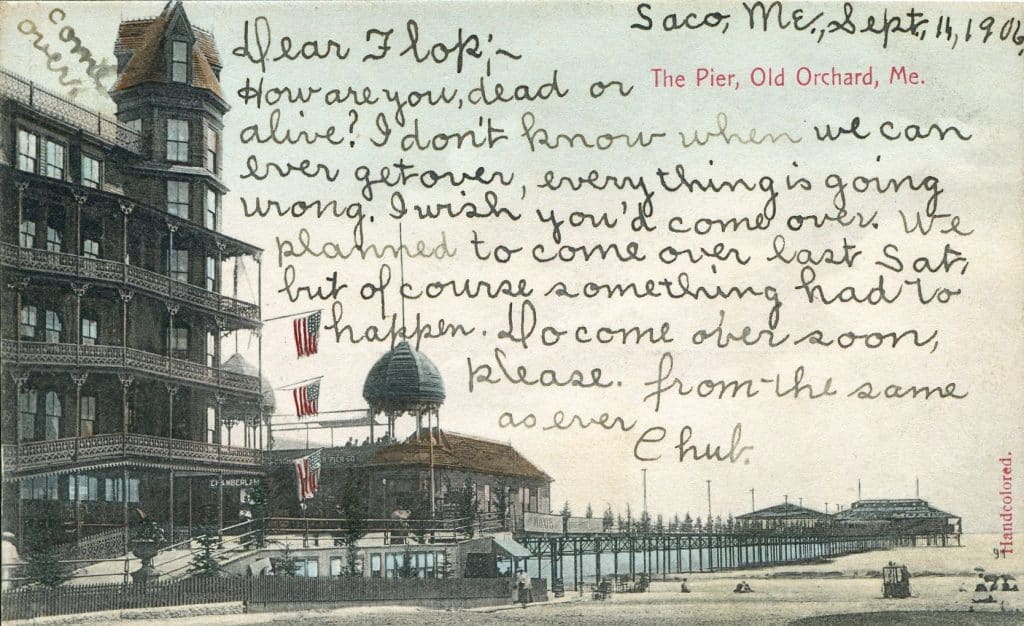 Saco, Me., Sept, 14, 1906,
come
over.
Dear Flop;~
The Pier, Old Orchard, Me.
How are you, dead or
alive? I don't know when we can
ever get over, everything is going
wrong. I wish you'd come over. We
planned to come over last Sat,
but of course something had to
happen. Do come over soon,
please. from the same
as ever
Chub.
PIER CO.
CHAMBERLA
Handcolored.